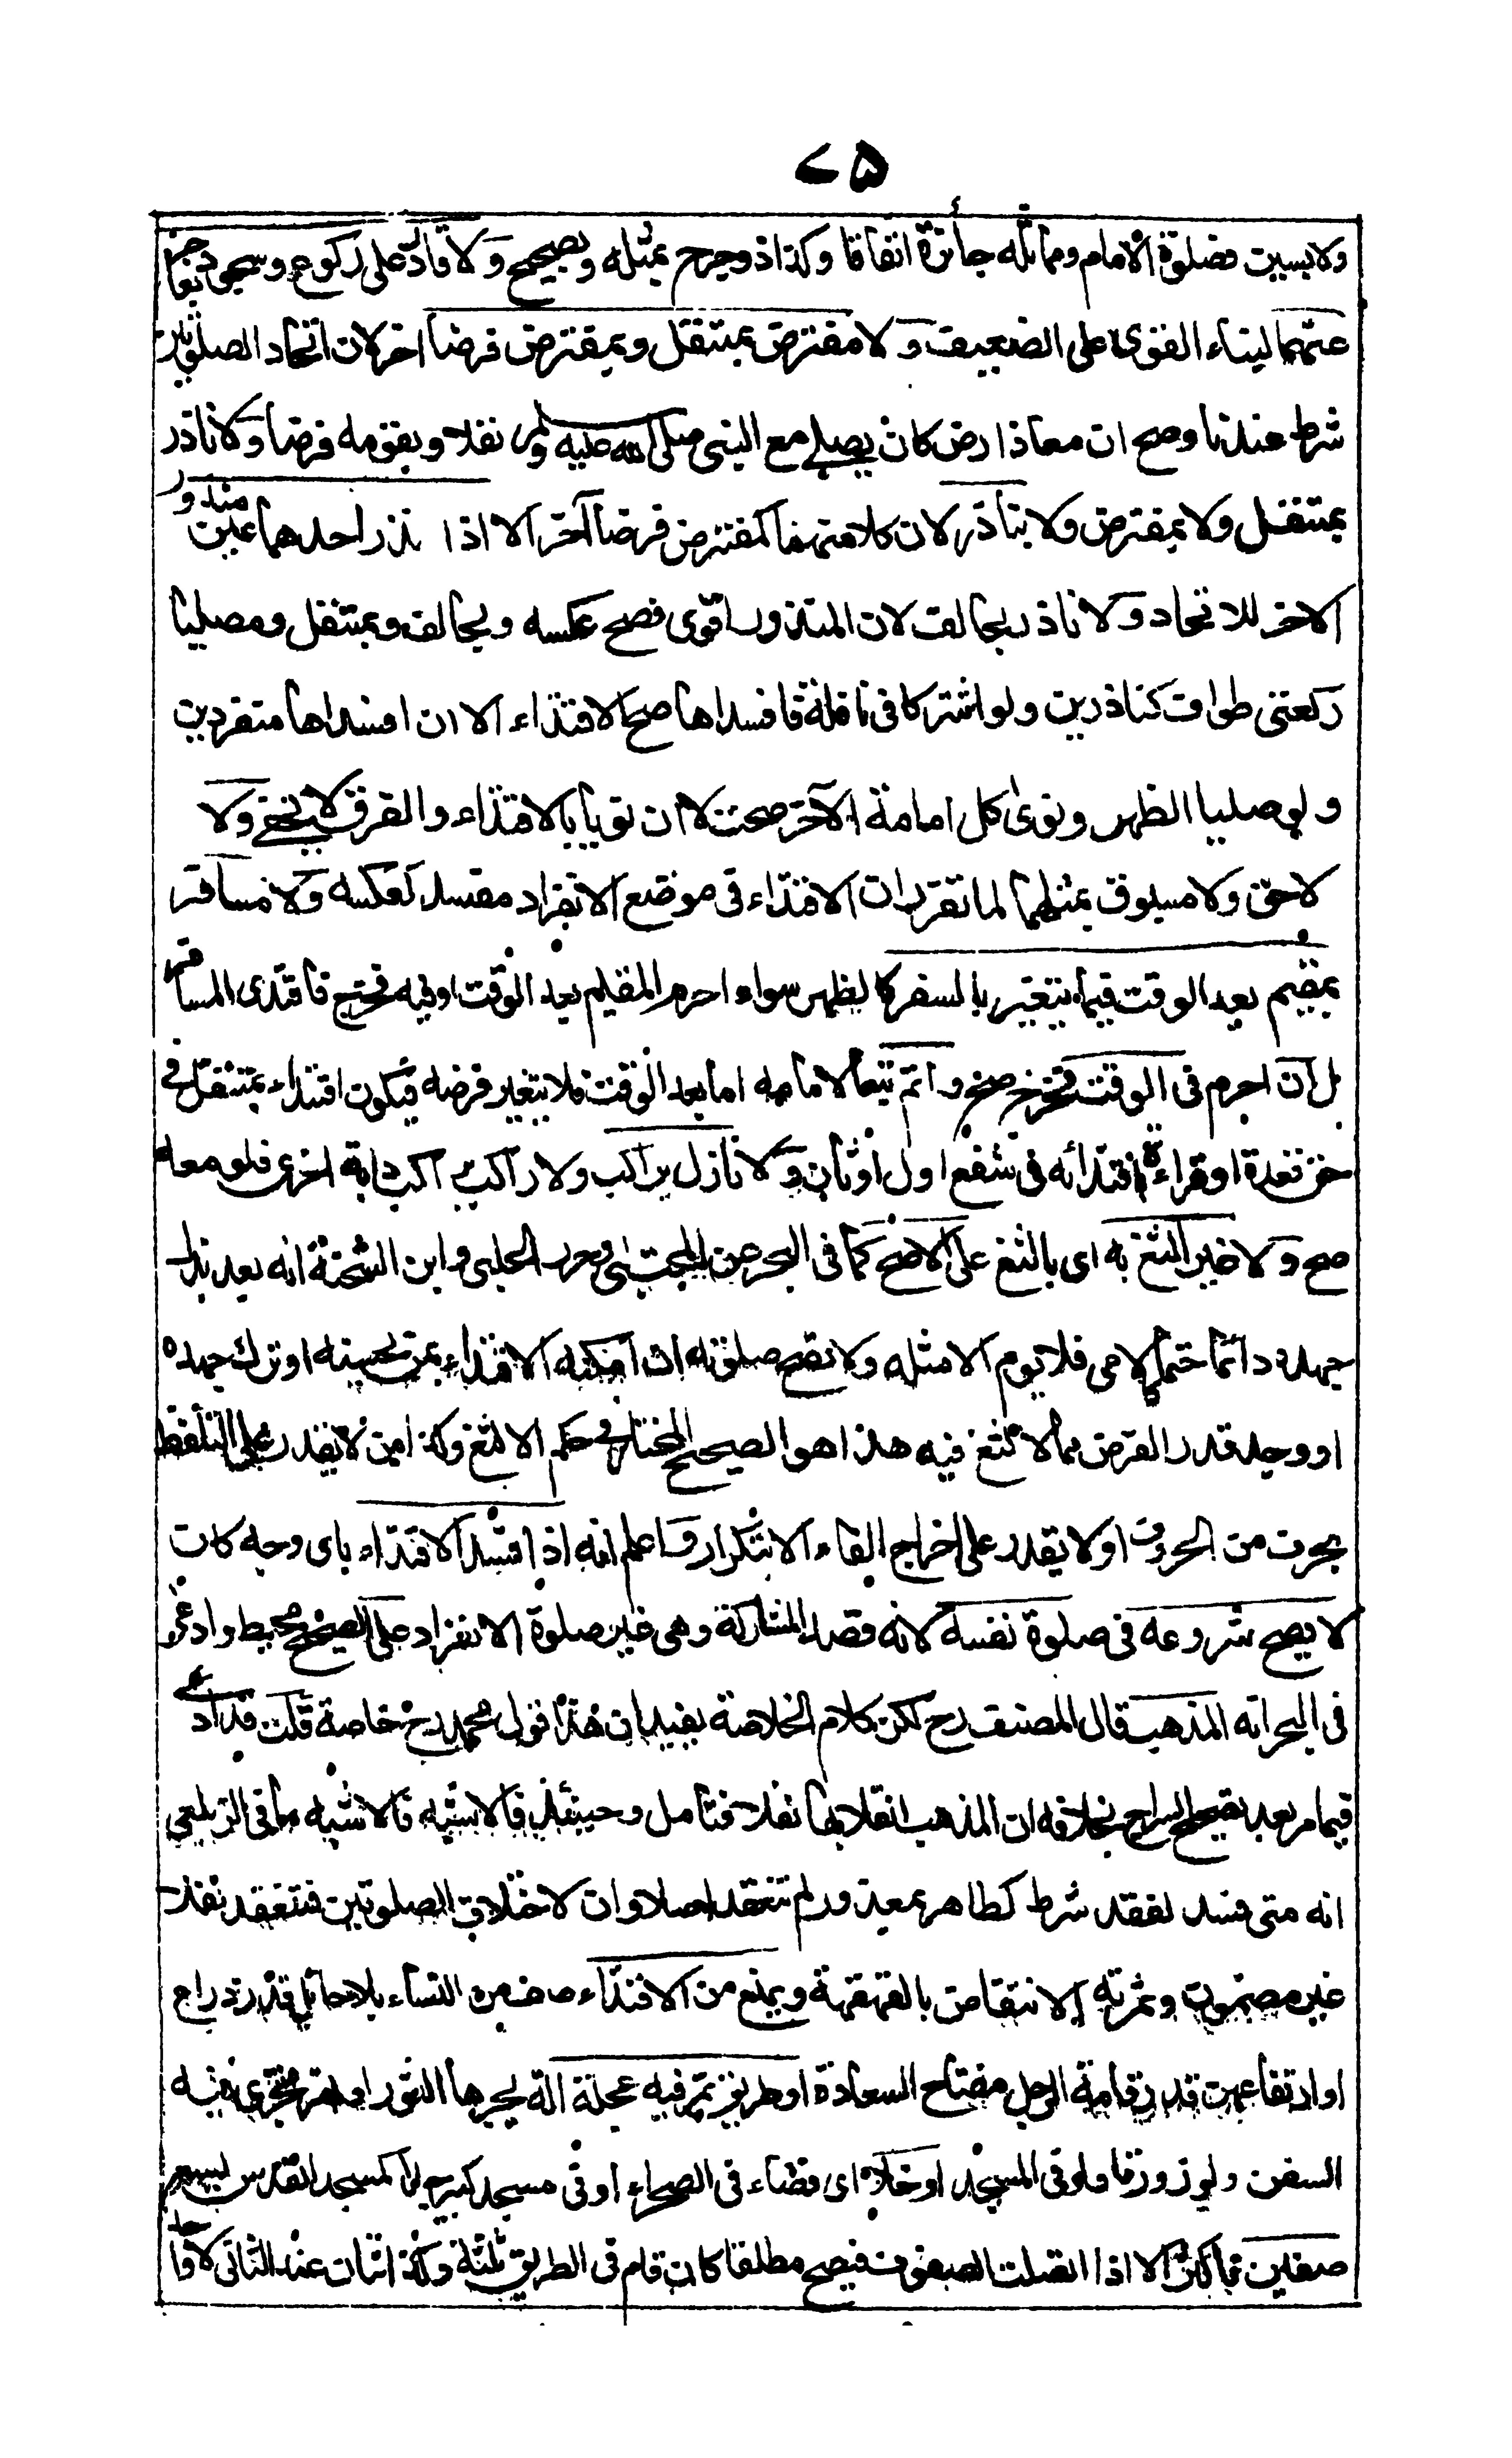 ٧٥
ولا بسيت فصلوة الامام ومماثله جائزة اتفاقا وكذا ذو جرح بمثله وبصحيح ولا قادر على ركوع وسجود بعاجز
عنهما لبناء القوي على الضعيف ولا مفترض بمتنفل وبمفترض فرضا اخر لان اتحاد الصلوتين
شرط عندنا وصح ان معاذا رض كان يصلي مع النبي صلى الله عليه وسلم نفلا وبقومه فرضا ولا ناذر
بمتنفل ولا بمفترض ولا بناذر لان كلا منهما كمفترض فرضا آخر الا اذا نذر احدهما عين منذور
الاخر للاتحاد ولا ناذر بحالف لان المنذورة اقوى فصح عكسه وبحالف وبمتنفل ومصليا
ركعتي طواف كناذرين ولو اشتركا في نافلة فافسداها صح الاقتداء الا ان افسداها منفردين
ولو صليا الظهر ونوى كل امامة الآخر صحت لا ان نويا بالاقتداء والفرق لا يخفى ولا
لاحق ولا مسبوق بمثلهما لما تقرر ان الاقتداء في موضع الانفراد مفسد كعكسه ولا مسافر
بمقيم بعد الوقت فيما يتغير بالسفر كالظهر سواء احرم المقيم بعد الوقت او فيه فخرج فاقتدى المسافر
بل ان احرم في الوقت فخرج صح واتم تبعا لامامه اما بعد الوقت فلا يتغير فرضه فيكون اقتداء بمتنفل في
حق قعدة او قراءة باقتدائه في شفع اول او ثان ولا نازل براكب ولا راكب راكب دابة اخرى فلو معه
صح ولا غير الثغ به اي بالثغ على الاصح كما في البحر عن المجتبى وحرر الحلبي وابن الشحنة انه بعد بذل
جهده دائما حتما كالامي فلا يوم الا مثله ولا تصح صلوته ان امكنه الاقتداء بمن يحسنه او ترك جهده
او وجد قدر الفرض مما لا لثغ فيه هذا هو الصحيح المختار في حكم الالثغ وكذا من لا يقدر على التلفظ
بحرف من الحروف او لا يقدر على اخراج الفاء الا بتكرار واعلم انه اذا فسد الاقتداء باي وجه كان
لا يصح شروعه في صلوة نفسه لانه قصد المشاركة وهي غير صلوة الانفراد على الصحيح محيط وادعى
في البحر انه المذهب قال المصنف رح لكن كلام الخلاصة يفيد ان هذا قول محمد رح خاصة قلت قد ادعى
فيما مر بعد تصحيح السراج بخلافه ان المذهب انقلابها نفلا فتامل وحينئذ فالاشبه فالاشبه ما في الزيلعي
انه متى فسد لفقد شرط كطاهر بمعذور لم تنعقد اصلا وان لاختلاف الصلوتين فتنعقد نفلا
غير مضمون وثمرته الانتقاض بالقهقهة ويمنع من الاقتداء صف من النساء بلا حائل قدر ذراع
او ارتفاعهن قدر قامة الرجل مفتاح السعادة او طريق تمر فيه عجلة الة يجرها الثور او نهر تجري فيه
السفن ولو زورقا ولو في المسجد او خلاء اي فضاء في الصحراء او في مسجد كبير جدا كمسجد القدس يسع
صفين فاكثر الا اذا اتصلت الصفوف فيصح مطلقا كان قام في الطريق ثلثة وكذا اثنان عند الثاني لا واحد